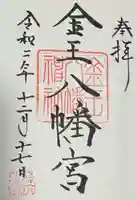 奉拝
金王八幡宮
令和二年十二月十七日